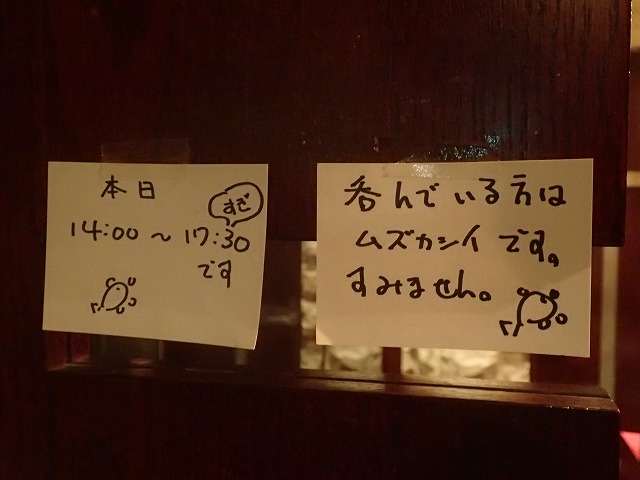 本日
14:00～17:30
すぎ
です
呑んでいる方は
ムズカシイです。
すみません。